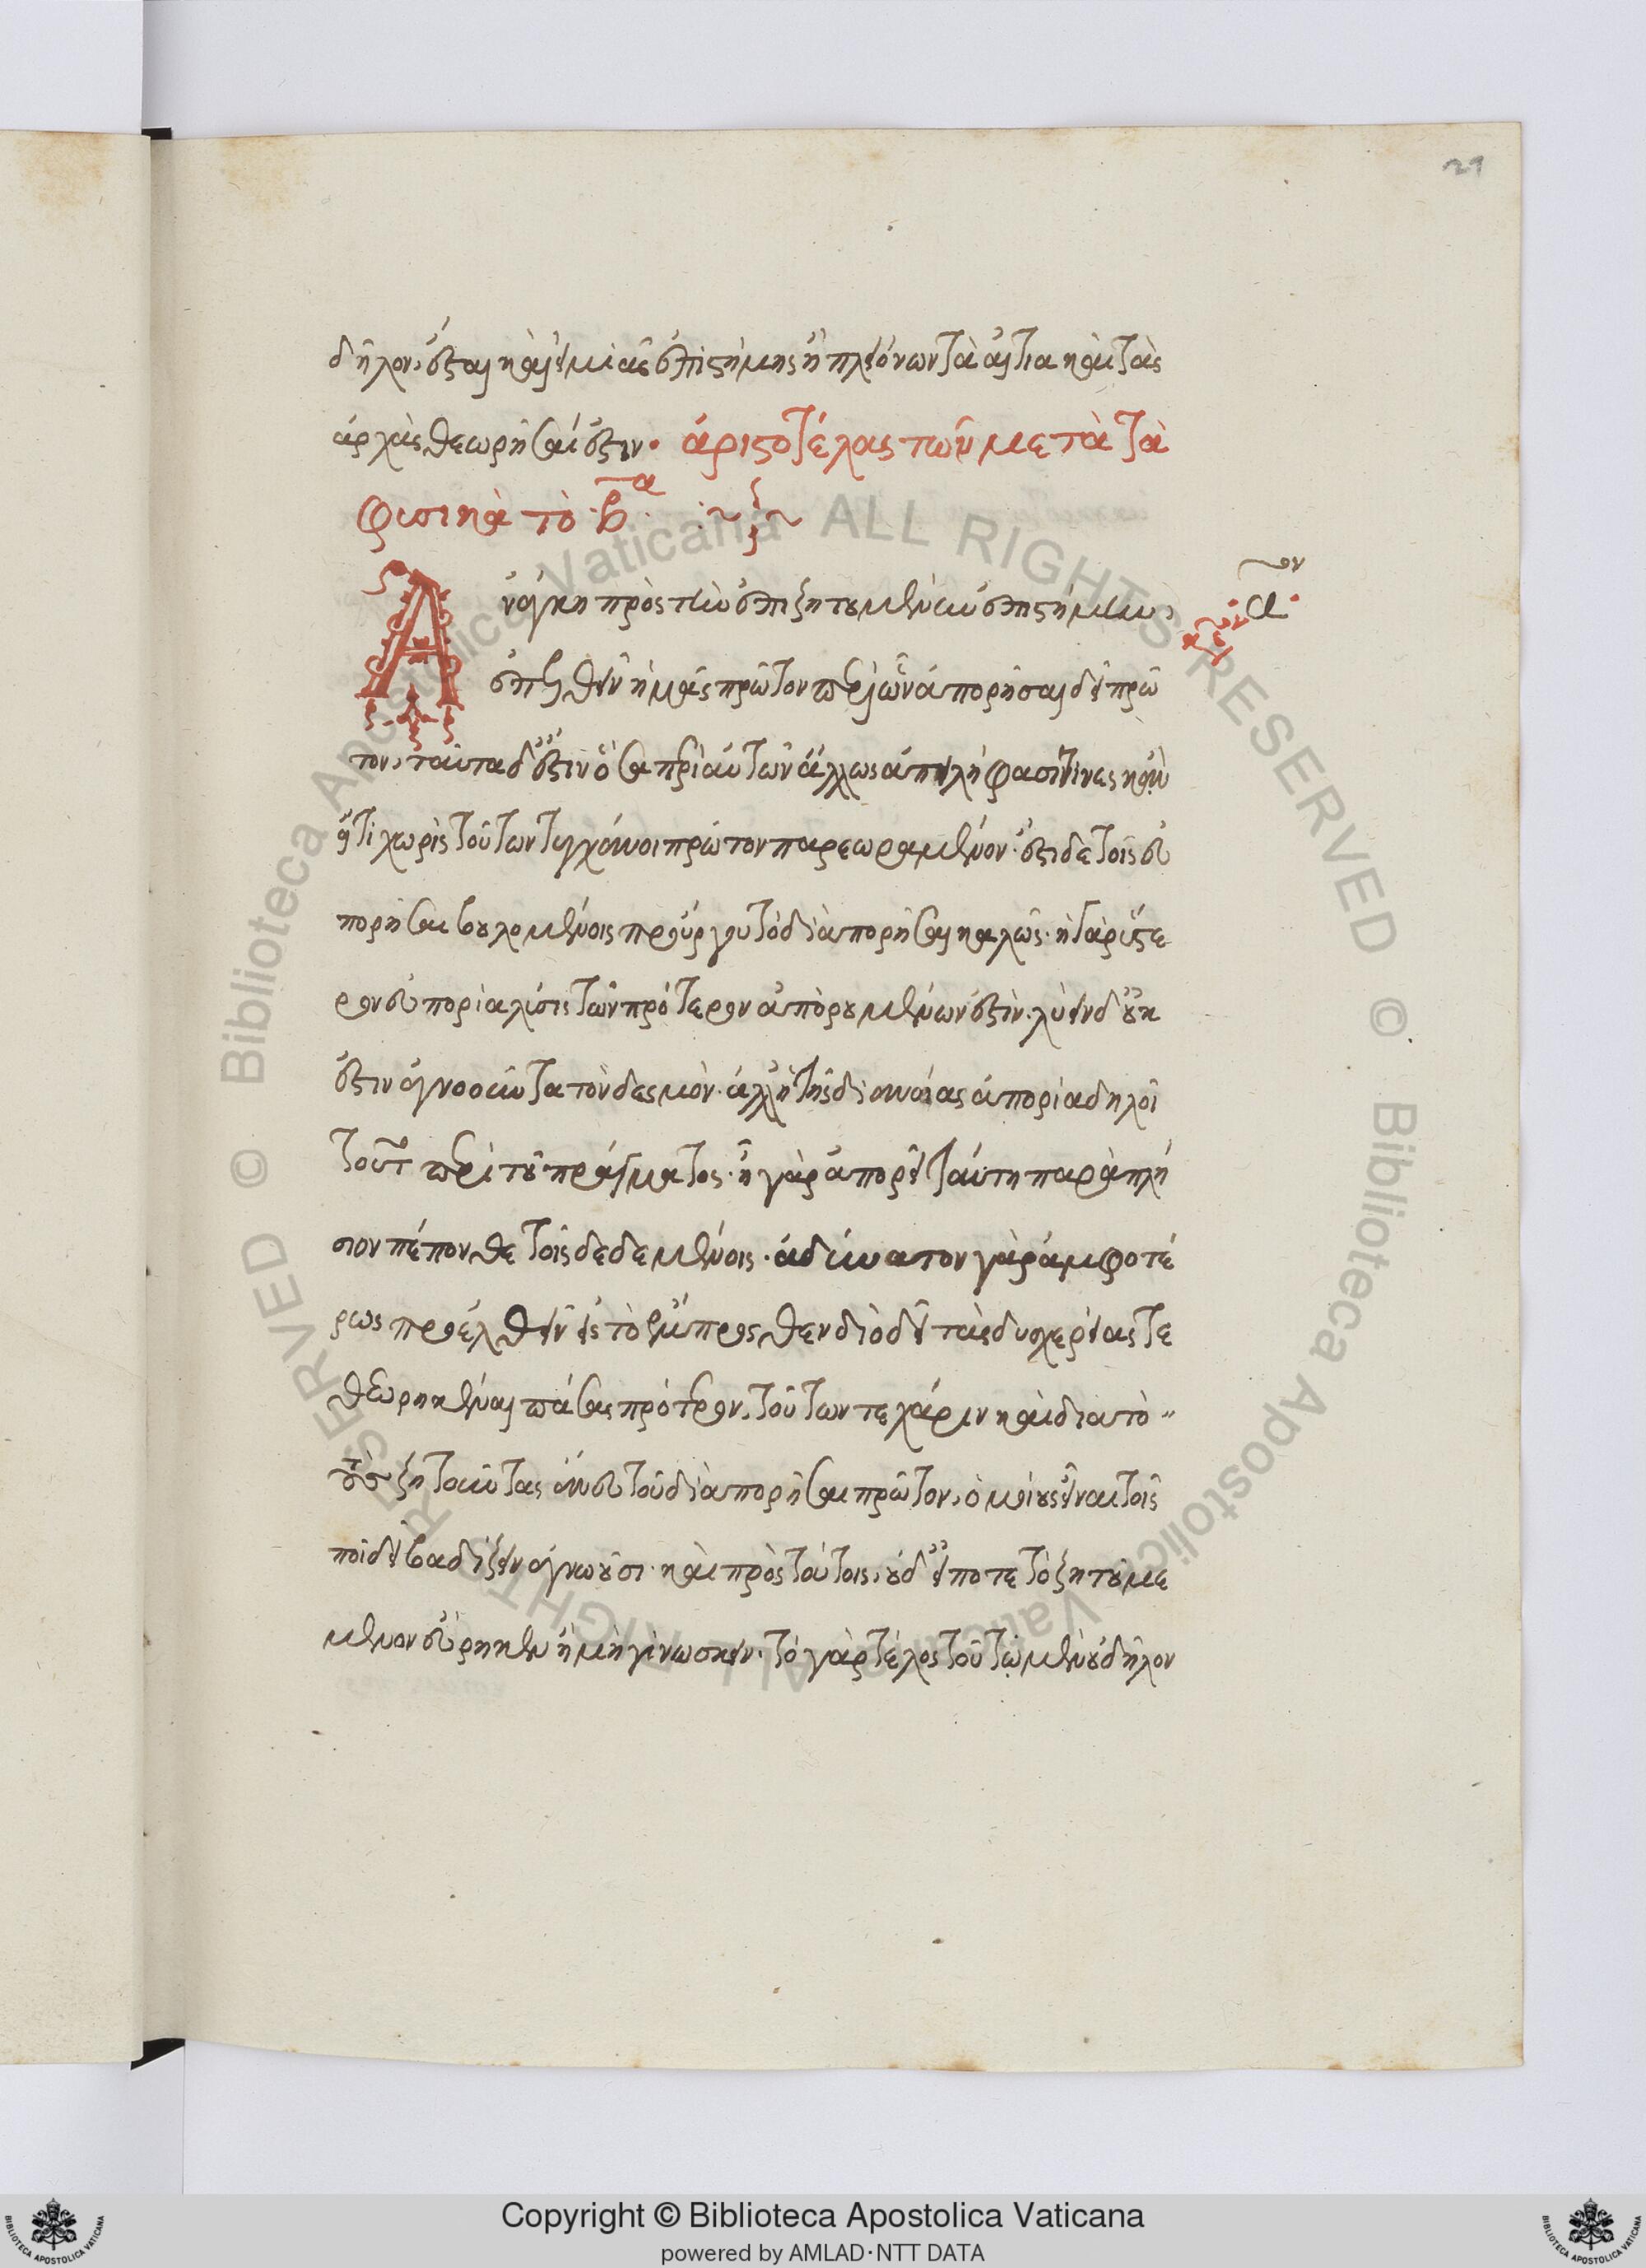 21
δῆλον· ἔσται καὶ εἰ μιᾶς ἐπιστήμης ἢ πλειόνων τὰ αἴτια καὶ τὰς
ἀρχὰς θεωρῆσαί ἐστιν· ἀριστοτέλους τῶν μετὰ τὰ
φυσικὰ τὸ β
Ἀνάγκη πρὸς τὴν ἐπιζητουμένην ἐπιστήμην,
ἐπελθεῖν ἡμᾶς πρῶτον περὶ ὧν ἀπορῆσαι δεῖ πρῶ
τον, ταῦτα δ' ἐστὶν ὅσα περὶ αὐτῶν ἄλλως ὑπειλήφασί τινες κἂν
εἴ τι χωρὶς τούτων τυγχάνοι πρῶτον παρεωραμένον· ἔστι δὲ τοῖς εὐ
πορῆσαι βουλομένοις προὔργου τὸ διαπορῆσαι καλῶς· ἡ γὰρ ὕστε
ρον εὐπορία λύσις τῶν πρότερον ἀπορουμένων ἐστὶν· λύειν δ' οὐκ
ἔστιν ἀγνοοῦντα τὸν δεσμὸν· ἀλλ' ἡ τῆς διανοίας ἀπορία δηλοῖ
τοῦτο περὶ τοῦ πράγματος· ἧ γὰρ ἀπορεῖ ταύτη παραπλή
σιον πέπονθε τοῖς δεδεμένοις· ἀδύνατον γὰρ ἀμφοτέ
ρως προελθεῖν εἰς τὸ ἔμπροσθεν διὸ δεῖ τὰς δυσχερείας τε
θεωρηκέναι πάσας πρότερον, τούτων τε χάριν καὶ διὰ τὸ
τοὺς ζητοῦντας ἄνευ τοῦ διαπορῆσαι πρῶτον, ὁμοίους εἶναι τοῖς
ποῖ δεῖ βαδίζειν ἀγνοοῦσι· καὶ πρὸς τούτοις, οὐδ' εἴ ποτε τὸ ζητούμε
μενον εὕρηκεν ἢ μὴ γινώσκειν· τὸ γὰρ τέλος τούτῳ μὲν οὐ δῆλον
Copyright © Biblioteca Apostolica Vaticana
powered by AMLAD·NTT DATA
© Biblioteca Apostolica Vaticana ALL RIGHTS RESERVED © Biblioteca Apostolica Vaticana ALL RIGHTS RESERVED